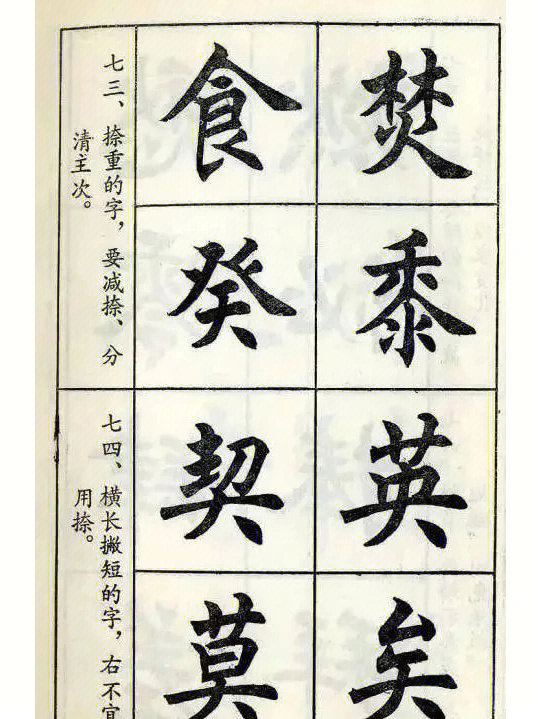 七三、捺重的字，要减捺、分
清主次。
食 焚
癸 黍
七四、横长撇短的字，右不宜
用捺。
契 英
莫 矣